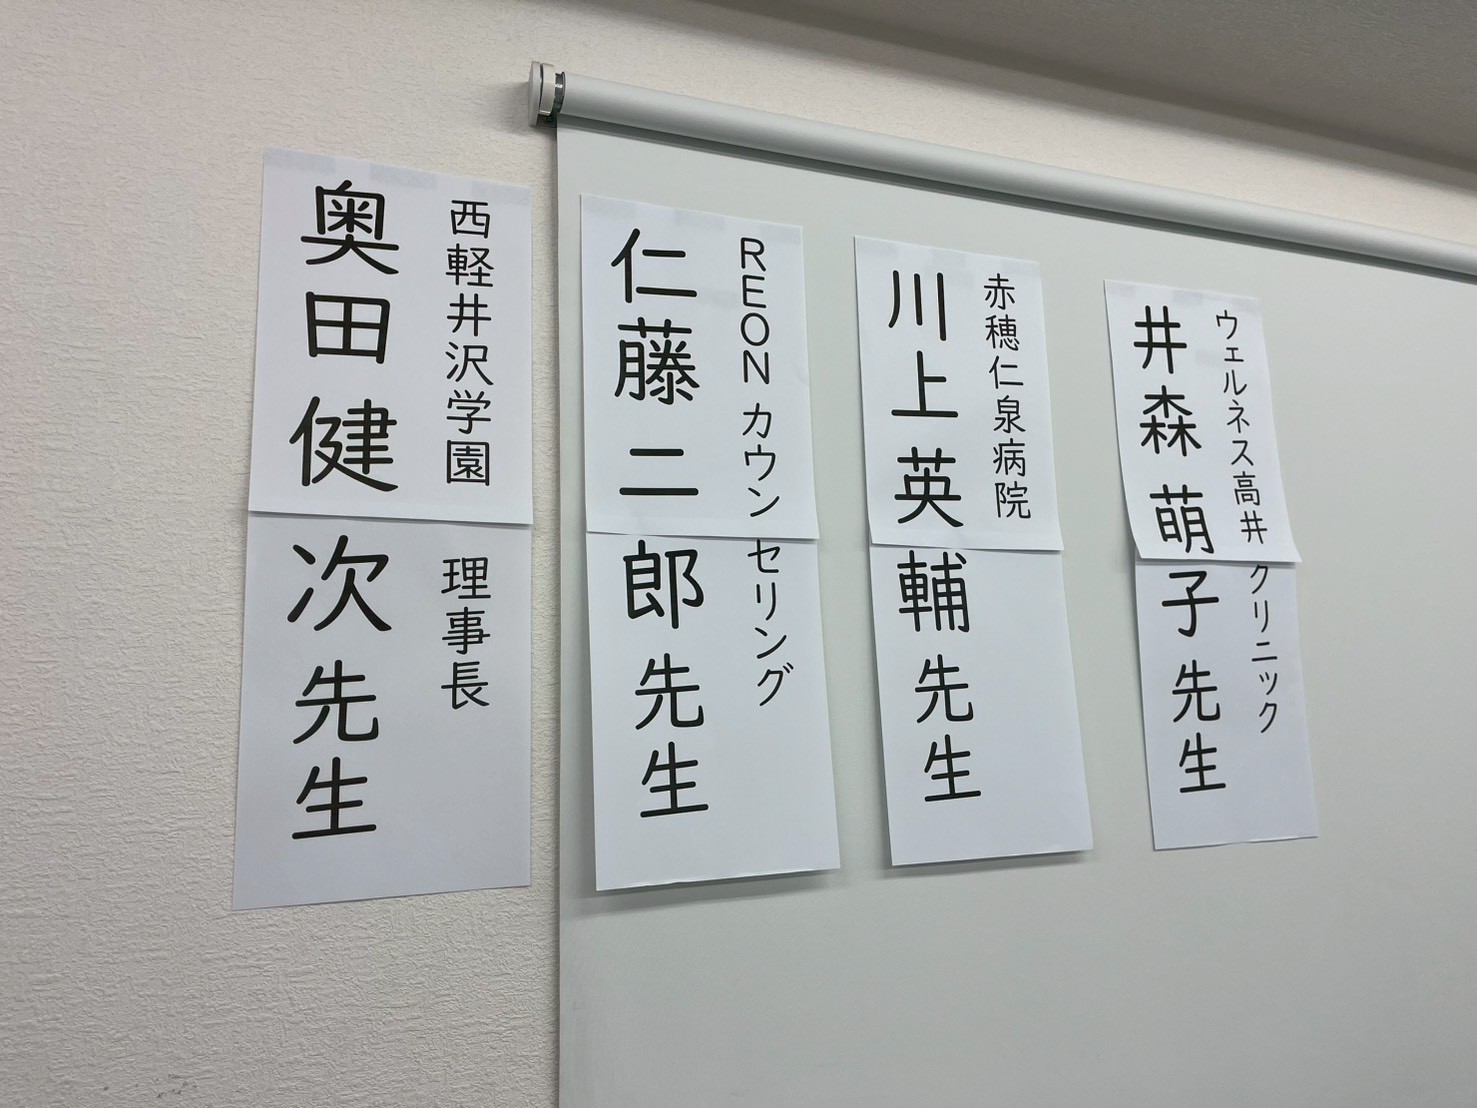 ウェルネス高井クリニック
井森 萌子 先生
赤穂仁泉病院
川上 英輔 先生
REON カウンセリング
仁藤 二郎 先生
西軽井沢学園 理事長
奥田 健次 先生